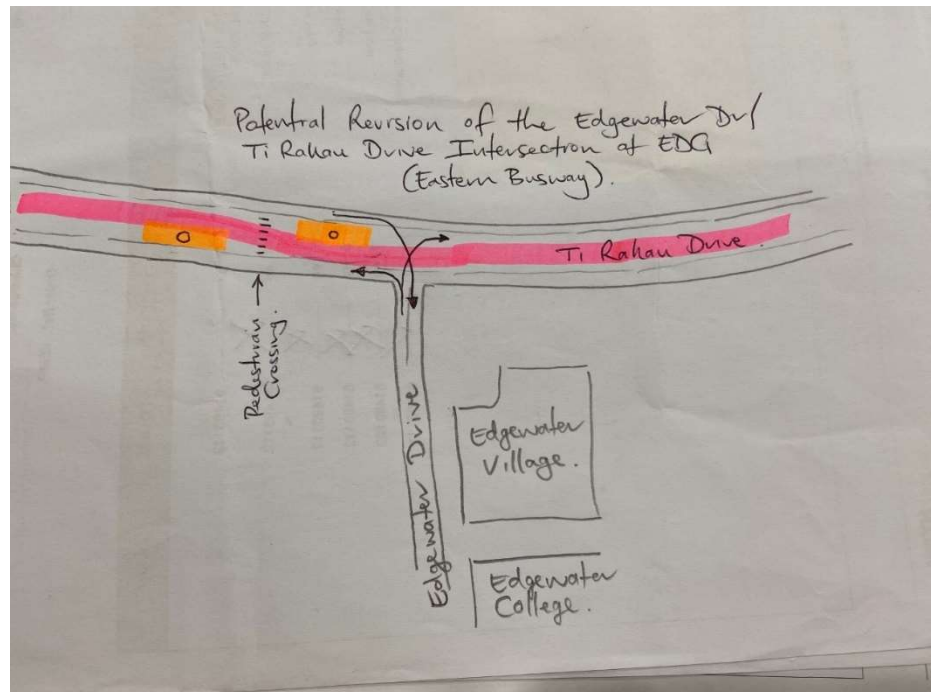 Potential Revision of the Edgewater Dr/
Ti Rakau Drive Intersection at EDG
(Eastern Busway).
Ti Rakau Drive.
Pedestrian
Crossing.
Edgewater Drive
Edgewater
Village.
Edgewater
College.